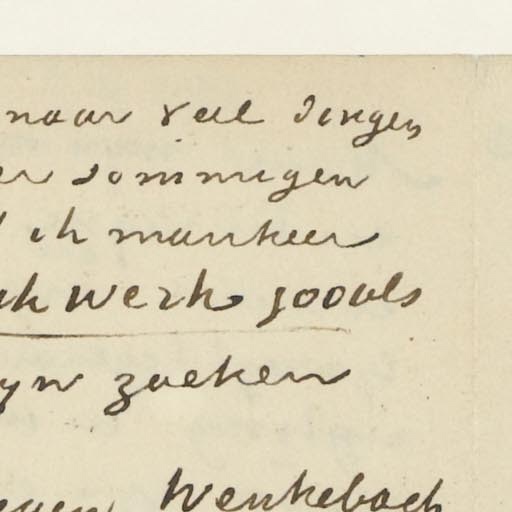 naar veel dingen
er sommigen
ik mankeer
ak werk zooals
yn zoeken
Wenkebach